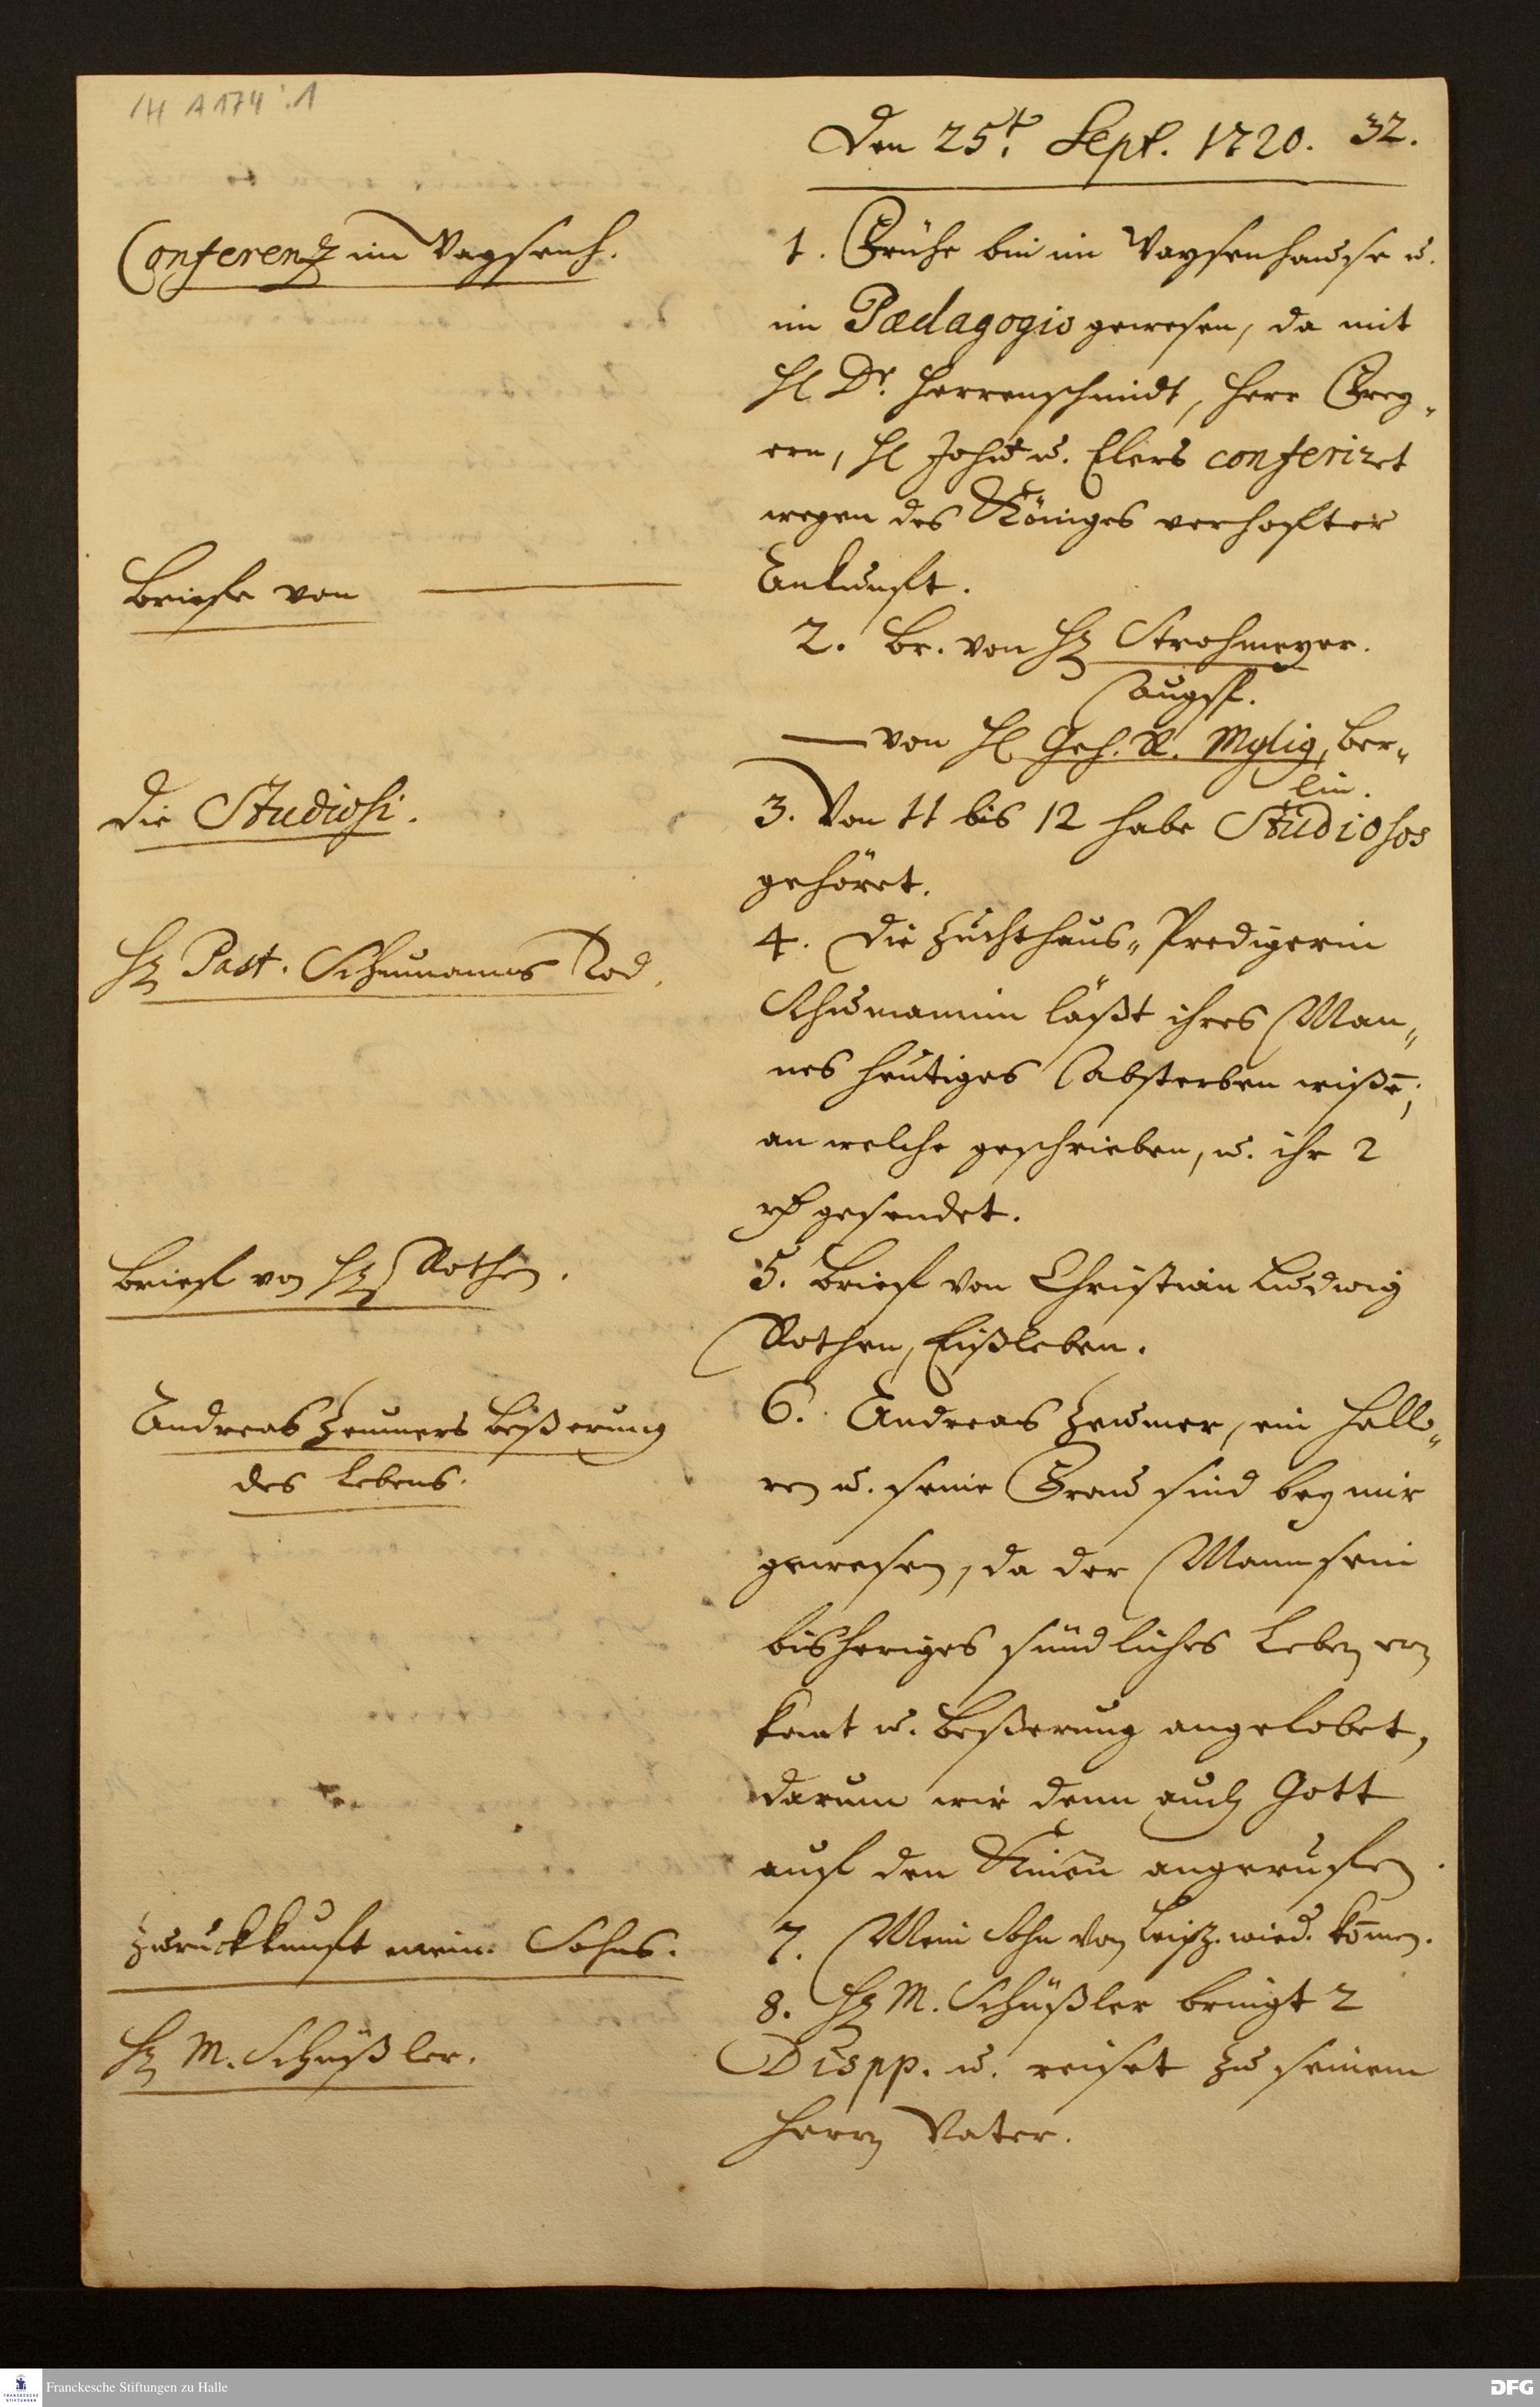 /H A 174 : 1
Den 25t. Sept. 1720. 32.
Conferentz im Waysenh.
1. Frühe bin im Waysenhause u.
im Pædagogio gewesen, da mit
H. Dr. Herrenschmidt, Herr Frey„
ern, H. John u. Elers conferiret
wegen des Königes verhoffter
Ankunft.
Briefe von
2. Br. von H. Strohmeyer.
Augsp.
— von H. Geh. R. Mylig, Ber„
lin.
Die Studiosi.
3. Von 11 bis 12 habe Studiosos
gehöret.
H. Past. Schumanns Tod.
4. Die Zuchthaus„Predigerin
Schumannin läßt ihres Man„
nes heutiges Absterben wißē;
an welche geschrieben, u. ihr 2
rh gesendet.
Brief von H. Rothen.
5. Brief von Christian Ludwig
Rothen, Eißleben.
Andreas Zeumers Beßerung
des Lebens.
6. Andreas Zeumer, ein Hallo„
ren u. seine Frau sind bey mir
gewesen, da der Mann sein
bisheriges sündliches Leben er
kant u. Beßerung angelobet,
darum wir denn auch Gott
auf den Knien angeruffen.
Zuruckkunft mein. Sohns.
7. Mein Sohn von Leipz. wied. kom̄en.
H. M. Schüßler.
8. H. M. Schüßler bringt 2
Dispp. u. reiset zu seinem
Herrn Vater.
Franckesche Stiftungen zu Halle
DFG